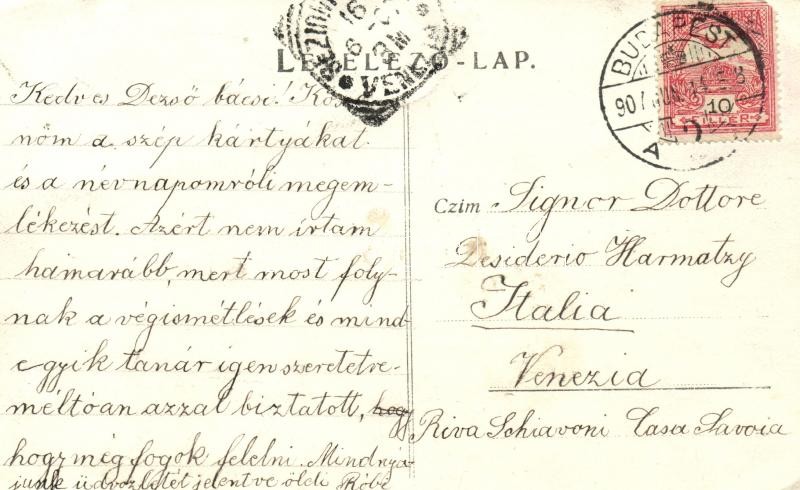 LEVELEZŐ-LAP.
VENEZIA
16
8
BUDAPEST
907 JUN. 14
10
FILLÉR
Kedves Dezső bácsi! Kösz
nöm a szép kártyákat
és a névnapomróli megem-
lékezést. Azért nem írtam
hamarább, mert most foly-
nak a végismétlések és mind-
egyik tanár igen szeretetre-
méltóan azzal biztatott, hogy
hogy még fogok felelni. Mindnyá-
junk üdvözletét jelentve öleli Robe
Czim Signor Dottore
Desiderio Harmatzy
Italia
Venezia
Riva Schiavoni Casa Savoia